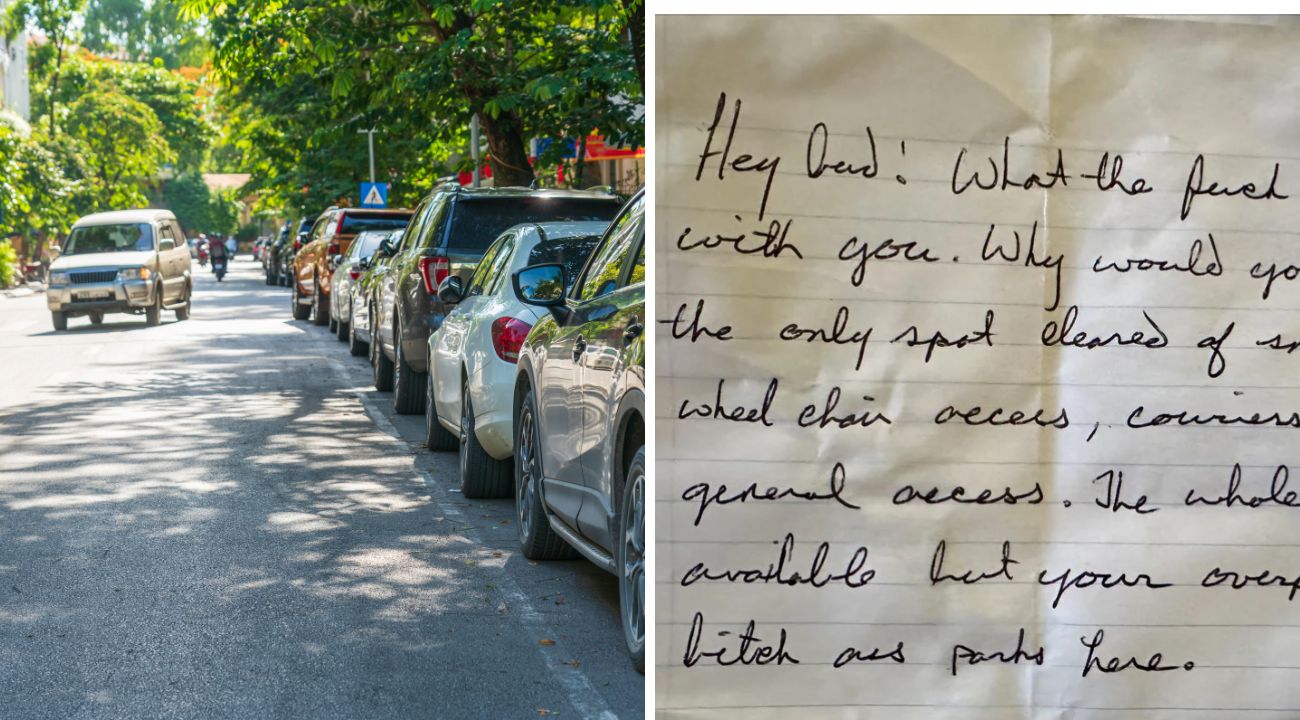 Hey bud! What the fuck
with you. Why would yo
the only spot cleared of sn
wheel chair access, couriers
general access. The whole
available but your overp
bitch ass parks here.